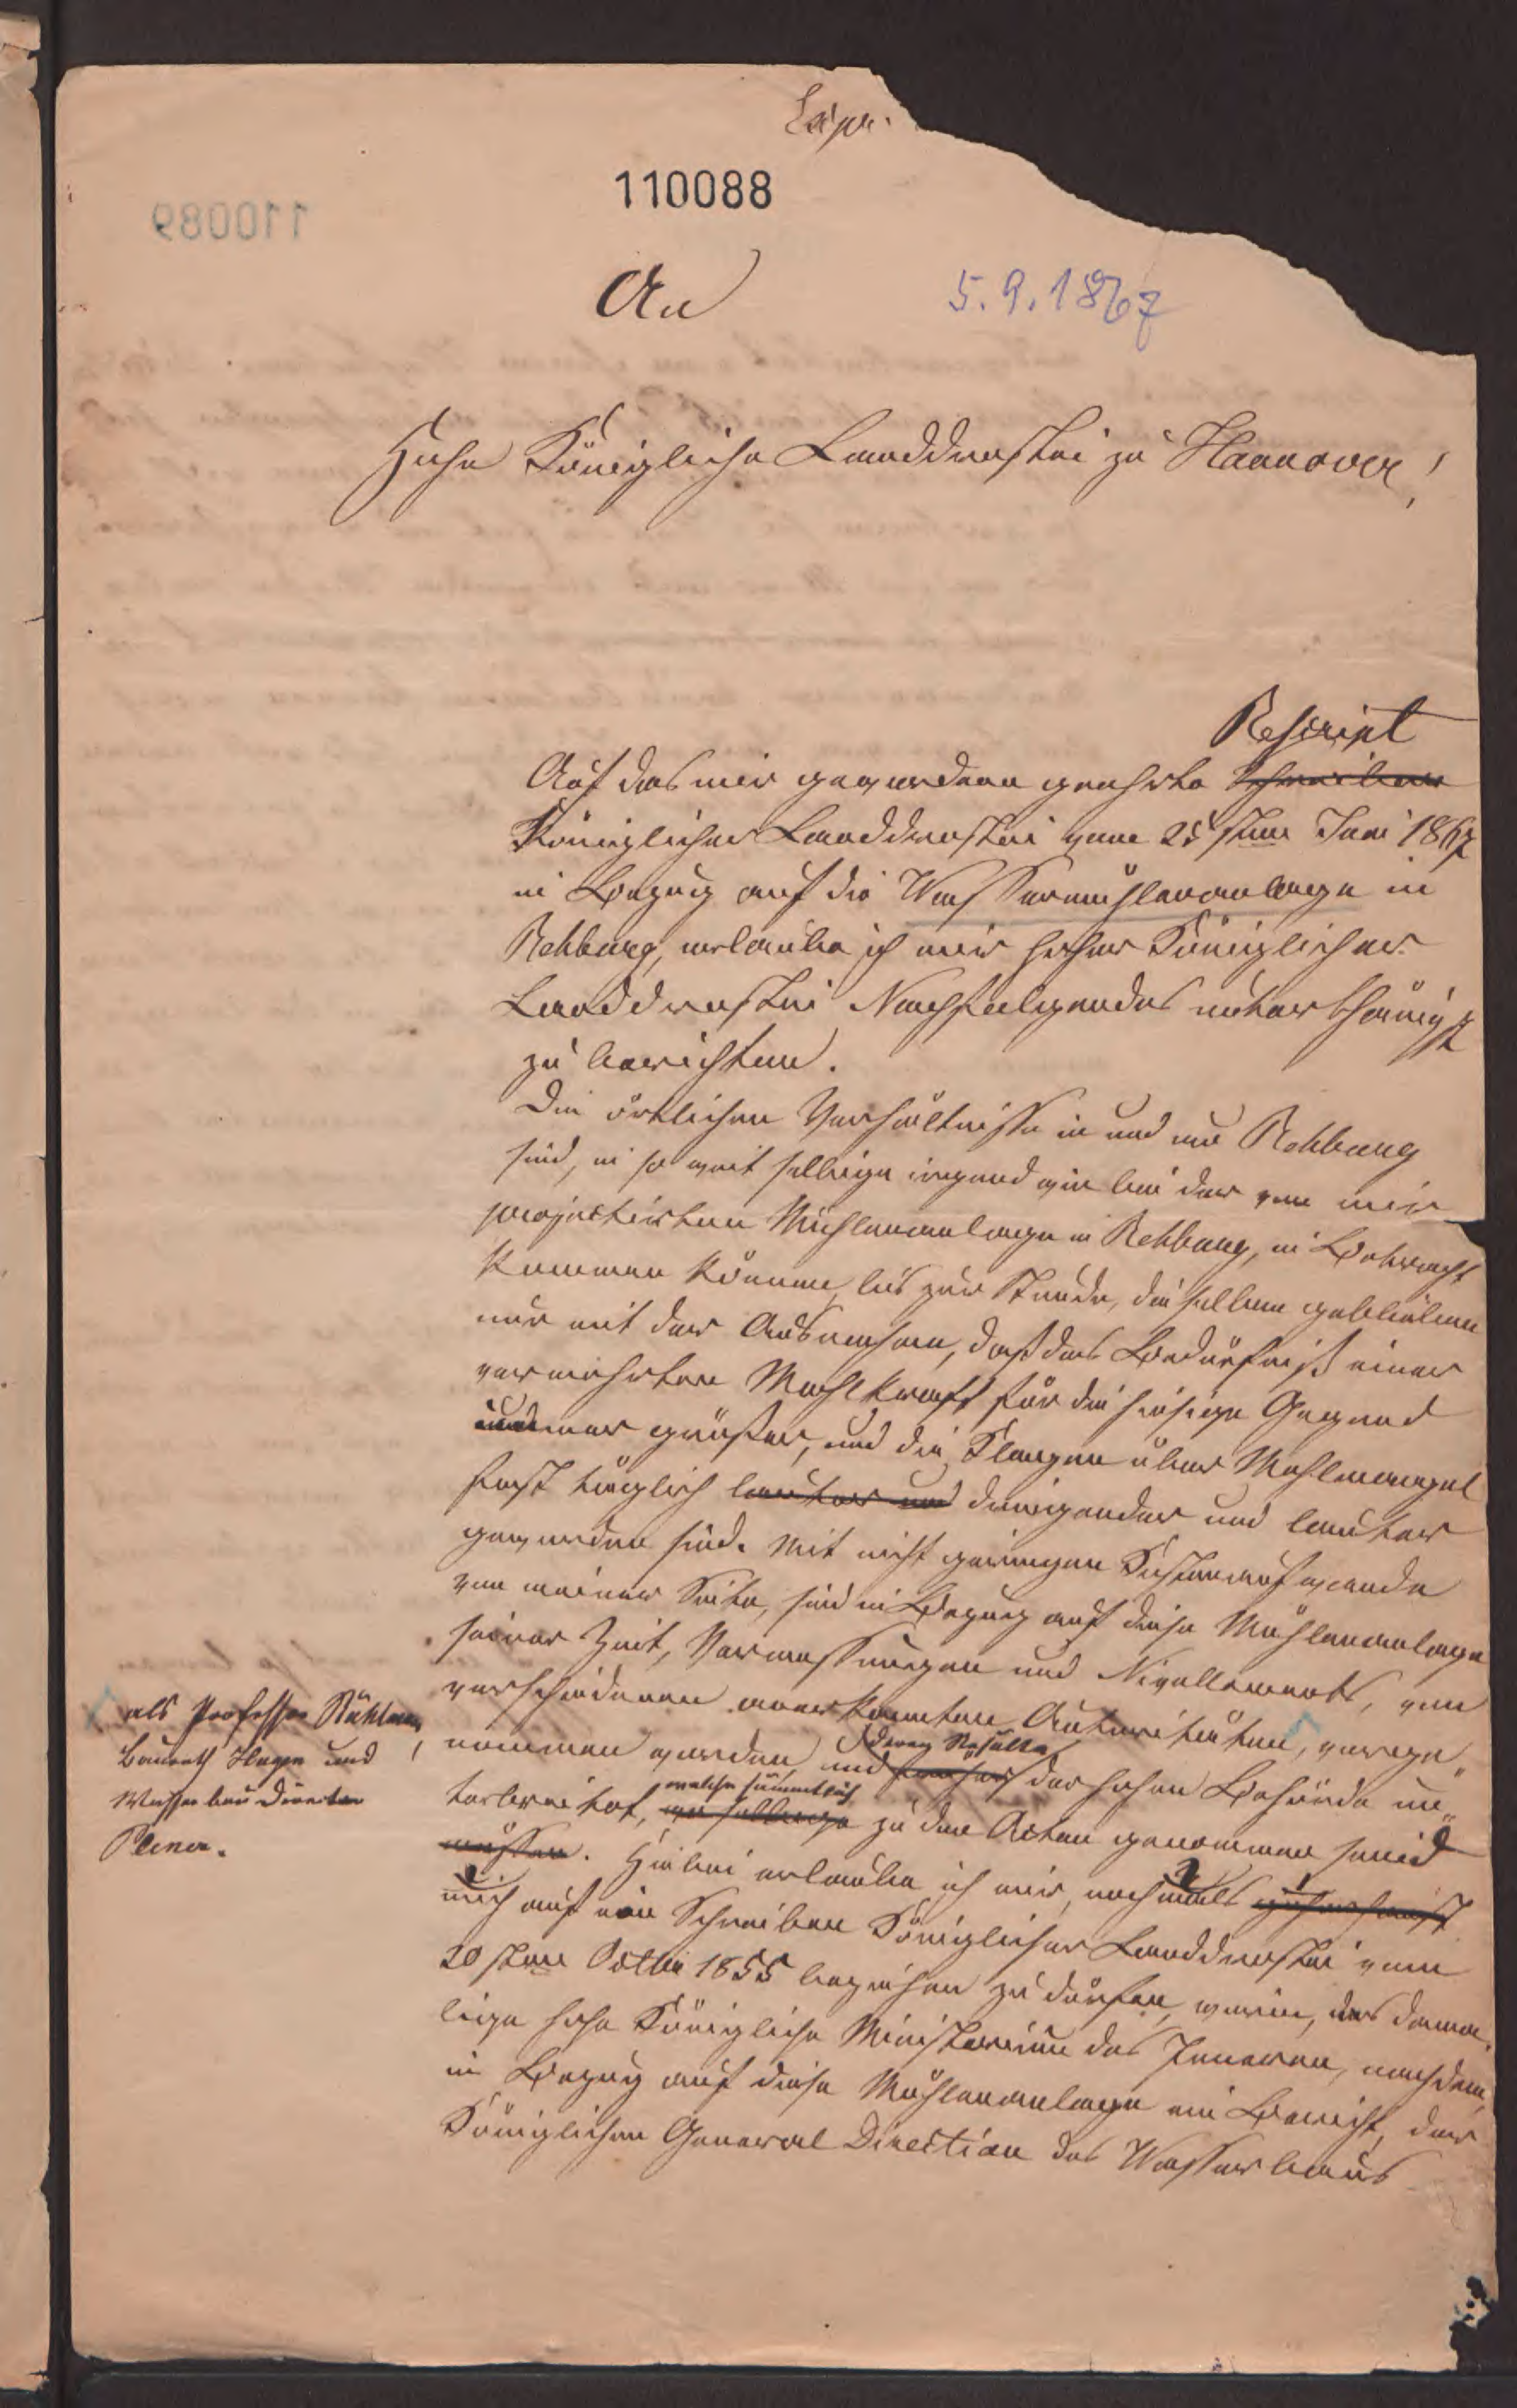 Copie.
110088
110089
An
5.9.1867
Hohe Königliche Landdrostei zu Hannover!
Rescript
Auf das mir gewordene geehrte Schreiben
Königlicher Landdrostei vom 25sten Juni 1867
in Bezug auf die Wassermühlenanlage in
Rehburg, erlaube ich mir hoher Königlicher
Landdrostei Nachfolgendes unterthänigst
zu berichten.
Die örtlichen Verhältnisse in und um Rehburg
sind, in so weit selbige irgend wie bei der von mir
projectirten Mühlenanlage in Rehburg, in Betracht
kommen können, bis zur Stunde, dieselben geblieben
nur mit der Ausnahme, daß das Bedürfniß einer
vermehrten Mahlkraft für die hiesige Gegend
immer größer, und die Klagen über Mahlmangel
fast täglich lauter und dringender und lauter
geworden sind. Mit nicht geringen Kostenaufwande
von meiner Seite, sind in Bezug auf diese Mühlenanlage
seiner Zeit, Vermessungen und Nivellements, von
verschiedenen anerkannten Autoritäten, vorge-
als Professor Rühlmann,
Baurath Hagen und
Wasserbau Director
Plener.
nommen worden und deren Resulta der hohen Behörde un-
terbreitet, welche sämmtlich zu den Acten genommen sind
müssen. Hiebei erlaube ich mir, nochmals
mich auf ein Schreiben Königlicher Landdrostei vom
20sten Octbr 1855 beziehen zu dürfen, worin, das dama-
lige hohe Königliche Ministerium des Inneren, nachdem
in Bezug auf diese Mühlenanlage ein Bericht, der
Königlichen General Direction des Wasserbaus